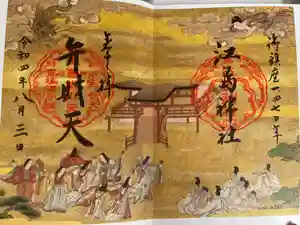 御鎮座一四七〇年
江島神社
奉拝
弁財天
令和四年八月三日